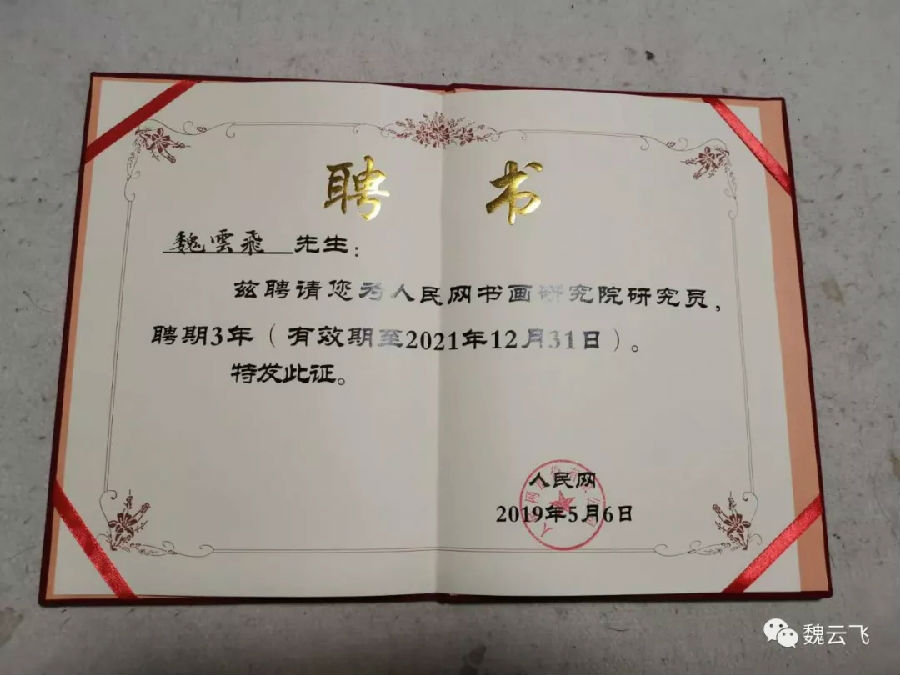 聘 书
魏雲飛 先生：
兹聘请您为人民网书画研究院研究员，
聘期3年（有效期至2021年12月31日）。
特发此证。
人民网
2019年5月6日
魏云飞